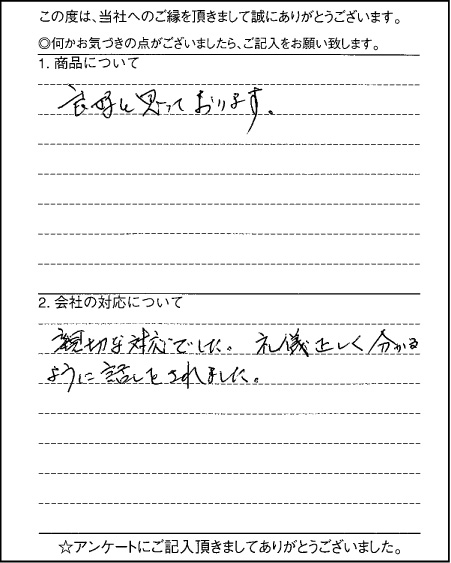 この度は、当社へのご縁を頂きまして誠にありがとうございます。
◎何かお気づきの点がございましたら、ご記入をお願い致します。
1. 商品について
良好と思っております。
2. 会社の対応について
親切な対応でした。礼儀正しく分かる
ように話しをされました。
☆アンケートにご記入頂きましてありがとうございました。